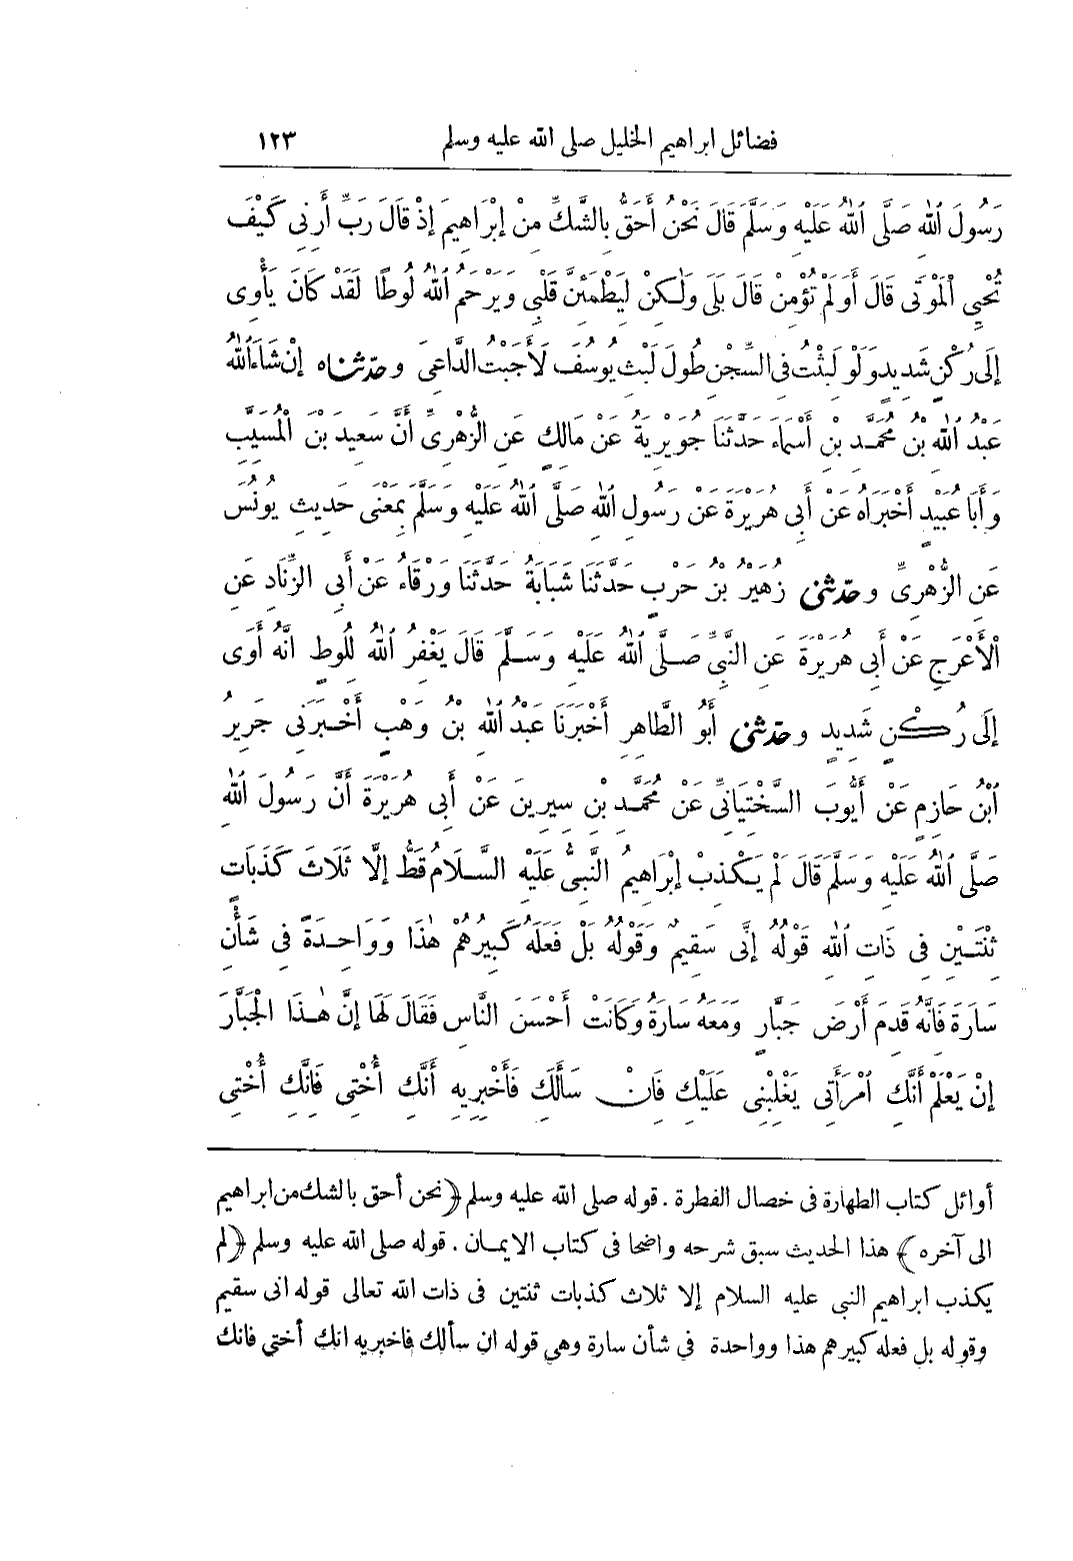 فضائل ابراهيم الخليل صلى الله عليه وسلم ١٢٣
رَسُولَ ٱللهِ صَلَّى ٱللهُ عَلَيْهِ وَسَلَّمَ قَالَ نَحْنُ أَحَقُّ بِالشَّكِّ مِنْ إِبْرَاهِيمَ إِذْ قَالَ رَبِّ أَرِنِى كَيْفَ
تُحْيِي ٱلْمَوْتَى قَالَ أَوَلَمْ تُؤْمِنْ قَالَ بَلَى وَلٰكِنْ لِيَطْمَئِنَّ قَلْبِى وَيَرْحَمُ ٱللهُ لُوطًا لَقَدْ كَانَ يَأْوِى
إِلَى رُكْنٍ شَدِيدٍ وَلَوْ لَبِثْتُ فِى السِّجْنِ طُولَ لَبْثِ يُوسُفَ لَأَجَبْتُ الدَّاعِىَ وحدّثناه إِنْ شَاءَ ٱللهُ
عَبْدُ ٱللهِ بْنُ مُحَمَّدِ بْنِ أَسْمَاءَ حَدَّثَنَا جُوَيْرِيَةُ عَنْ مَالِكٍ عَنِ الزُّهْرِىِّ أَنَّ سَعِيدَ بْنَ الْمُسَيِّبِ
وَأَبَا عُبَيْدٍ أَخْبَرَاهُ عَنْ أَبِى هُرَيْرَةَ عَنْ رَسُولِ ٱللهِ صَلَّى ٱللهُ عَلَيْهِ وَسَلَّمَ بِمَعْنَى حَدِيثِ يُونُسَ
عَنِ الزُّهْرِىِّ وحدّثنى زُهَيْرُ بْنُ حَرْبٍ حَدَّثَنَا شَبَابَةُ حَدَّثَنَا وَرْقَاءُ عَنْ أَبِى الزِّنَادِ عَنِ
ٱلْأَعْرَجِ عَنْ أَبِى هُرَيْرَةَ عَنِ النَّبِىِّ صَلَّى ٱللهُ عَلَيْهِ وَسَلَّمَ قَالَ يَغْفِرُ ٱللهُ لِلُوطٍ إِنَّهُ أَوَى
إِلَى رُكْنٍ شَدِيدٍ وحدّثنى أَبُو الطَّاهِرِ أَخْبَرَنَا عَبْدُ ٱللهِ بْنُ وَهْبٍ أَخْبَرَنِى جَرِيرُ
ٱبْنُ حَازِمٍ عَنْ أَيُّوبَ السَّخْتِيَانِىِّ عَنْ مُحَمَّدِ بْنِ سِيرِينَ عَنْ أَبِى هُرَيْرَةَ أَنَّ رَسُولَ ٱللهِ
صَلَّى ٱللهُ عَلَيْهِ وَسَلَّمَ قَالَ لَمْ يَكْذِبْ إِبْرَاهِيمُ النَّبِىُّ عَلَيْهِ السَّلَامُ قَطُّ إِلَّا ثَلَاثَ كَذَبَاتٍ
ثِنْتَيْنِ فِى ذَاتِ ٱللهِ قَوْلُهُ إِنِّى سَقِيمٌ وَقَوْلُهُ بَلْ فَعَلَهُ كَبِيرُهُمْ هٰذَا وَوَاحِدَةً فِى شَأْنِ
سَارَةَ فَإِنَّهُ قَدِمَ أَرْضَ جَبَّارٍ وَمَعَهُ سَارَةُ وَكَانَتْ أَحْسَنَ النَّاسِ فَقَالَ لَهَا إِنَّ هٰذَا الْجَبَّارَ
إِنْ يَعْلَمْ أَنَّكِ ٱمْرَأَتِى يَغْلِبْنِى عَلَيْكِ فَإِنْ سَأَلَكِ فَأَخْبِرِيهِ أَنَّكِ أُخْتِى فَإِنَّكِ أُخْتِى
أوائل كتاب الطهارة فى خصال الفطرة . قوله صلى الله عليه وسلم ﴿نحن أحق بالشك من ابراهيم
الى آخره﴾ هذا الحديث سبق شرحه واضحا فى كتاب الايمان . قوله صلى الله عليه وسلم ﴿لم
يكذب ابراهيم النبى عليه السلام إلا ثلاث كذبات ثنتين فى ذات الله تعالى قوله انى سقيم
وقوله بل فعله كبيرهم هذا وواحدة فى شأن سارة وهى قوله ان سألك فاخبريه انك أختى فانك